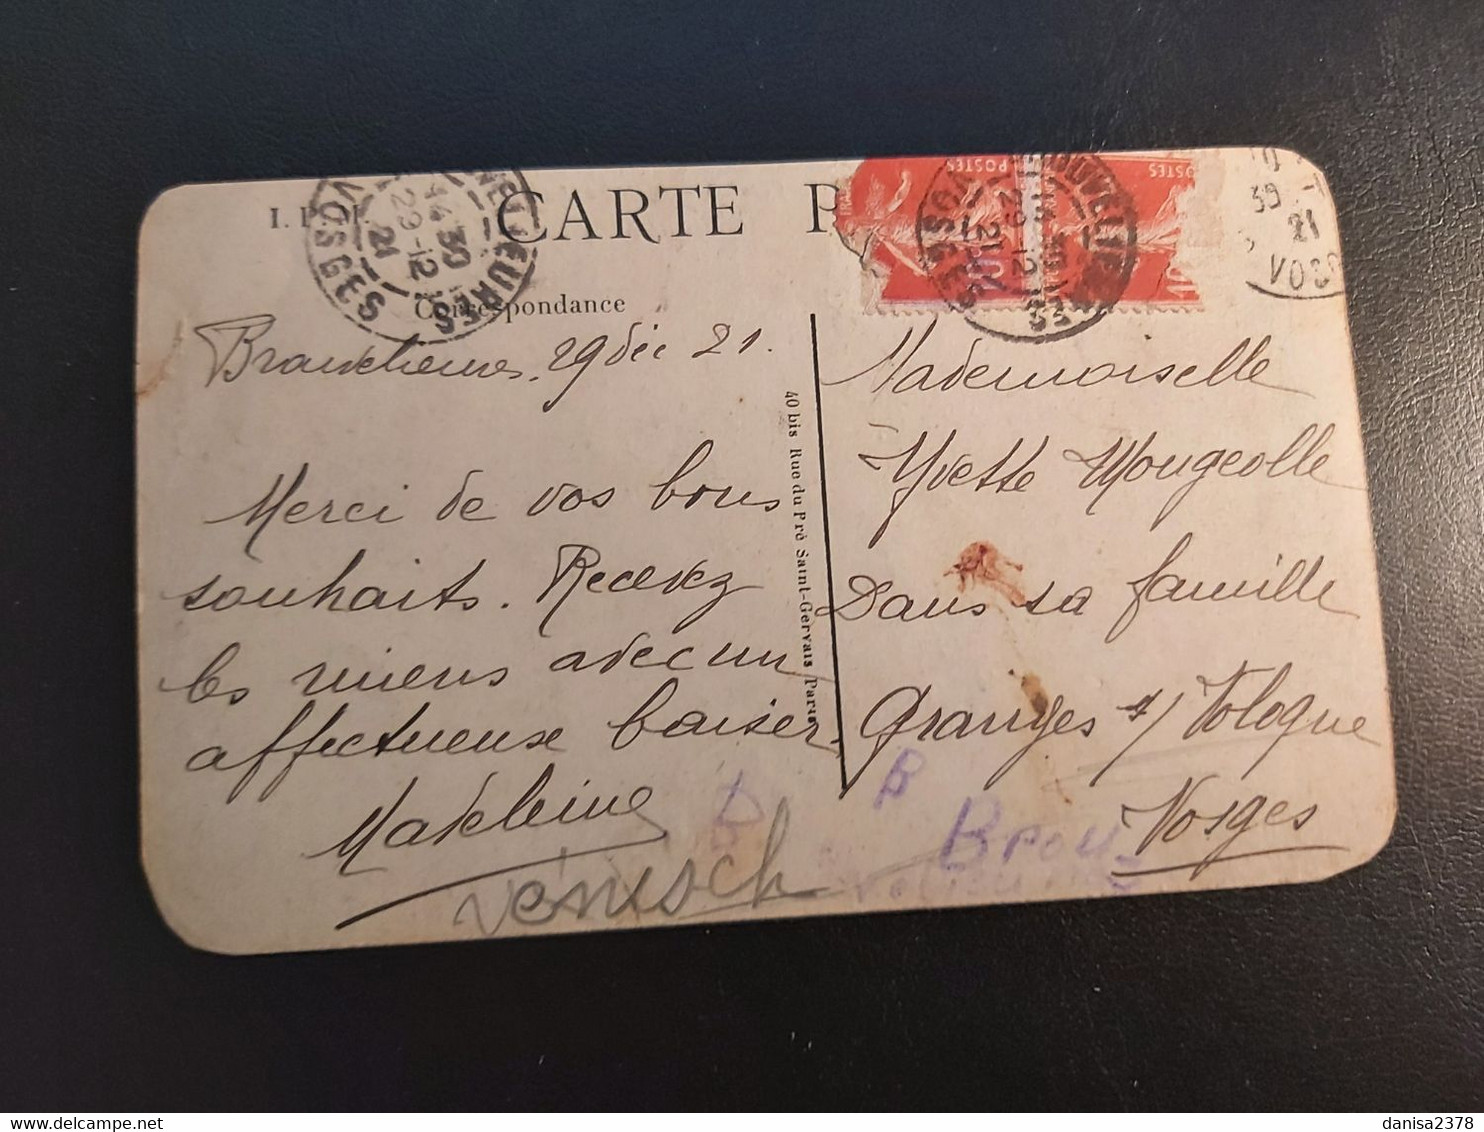 CARTE P
Correspondance
29 déc 21.
Merci de vos bons
souhaits. Recevez
les miens avec un
affectueuse baiser.
Madeleine
40 bis Rue du Pré Saint-Gervais Paris
POSTES
POSTES
VOSGES
14 30
29-12
21
VOSGES
29-12
21
21
VOSG
Mademoiselle
Yvette Mougeolle
Dans sa famille
Granges s/ Vologne
Vosges
B
Brou
danisa2378